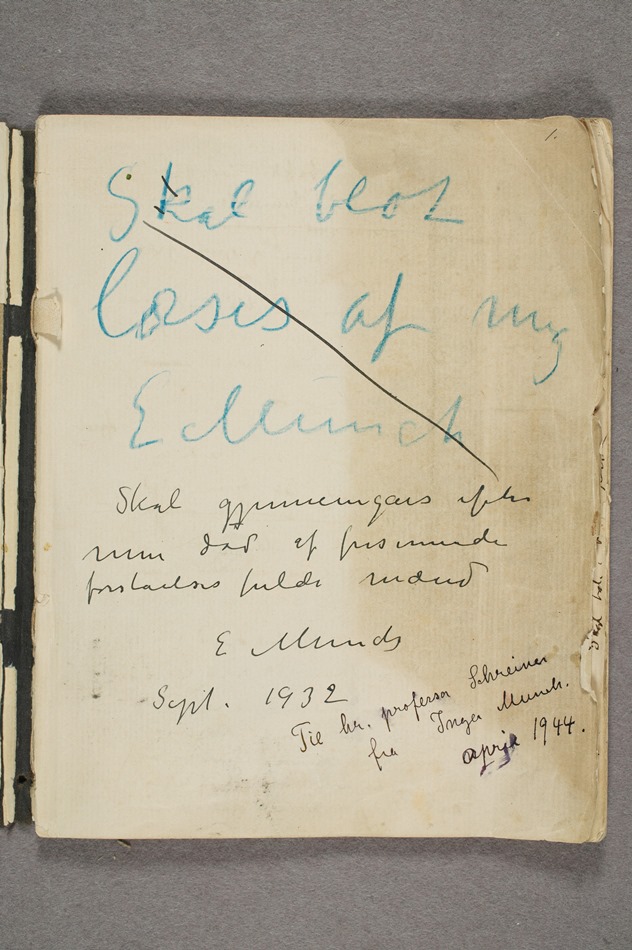 1.
Skal blot
læses af mig
E Munch
Skal gjennemgaaes efter
min død af frisinnede
forstaaelsesfulde mænd
E Munch
Sept. 1932
Til hr. professor Schreiner
fra Inger Munch.
april 1944.